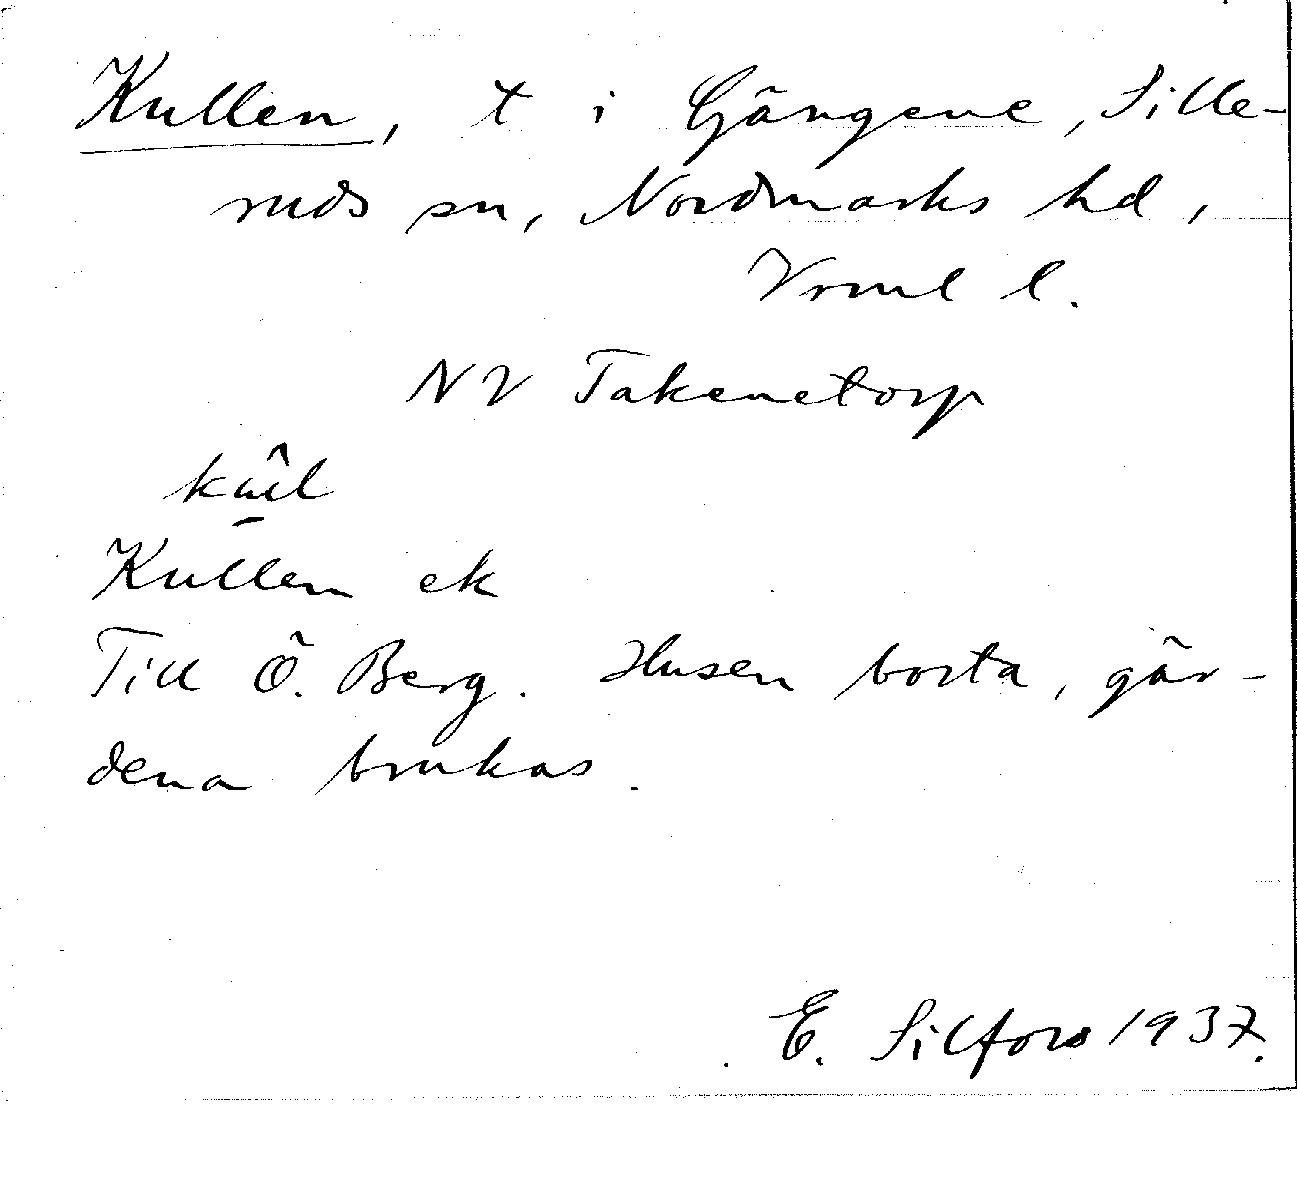 Kullen, t i Gängene, Sille-
ruds sn, Nordmarks hd,
Vrml l.
NV Takenetorp
Kullen ek
Till Ö. Berg. Husen borta, gär-
dena brukas.
E. Silfors 1937.